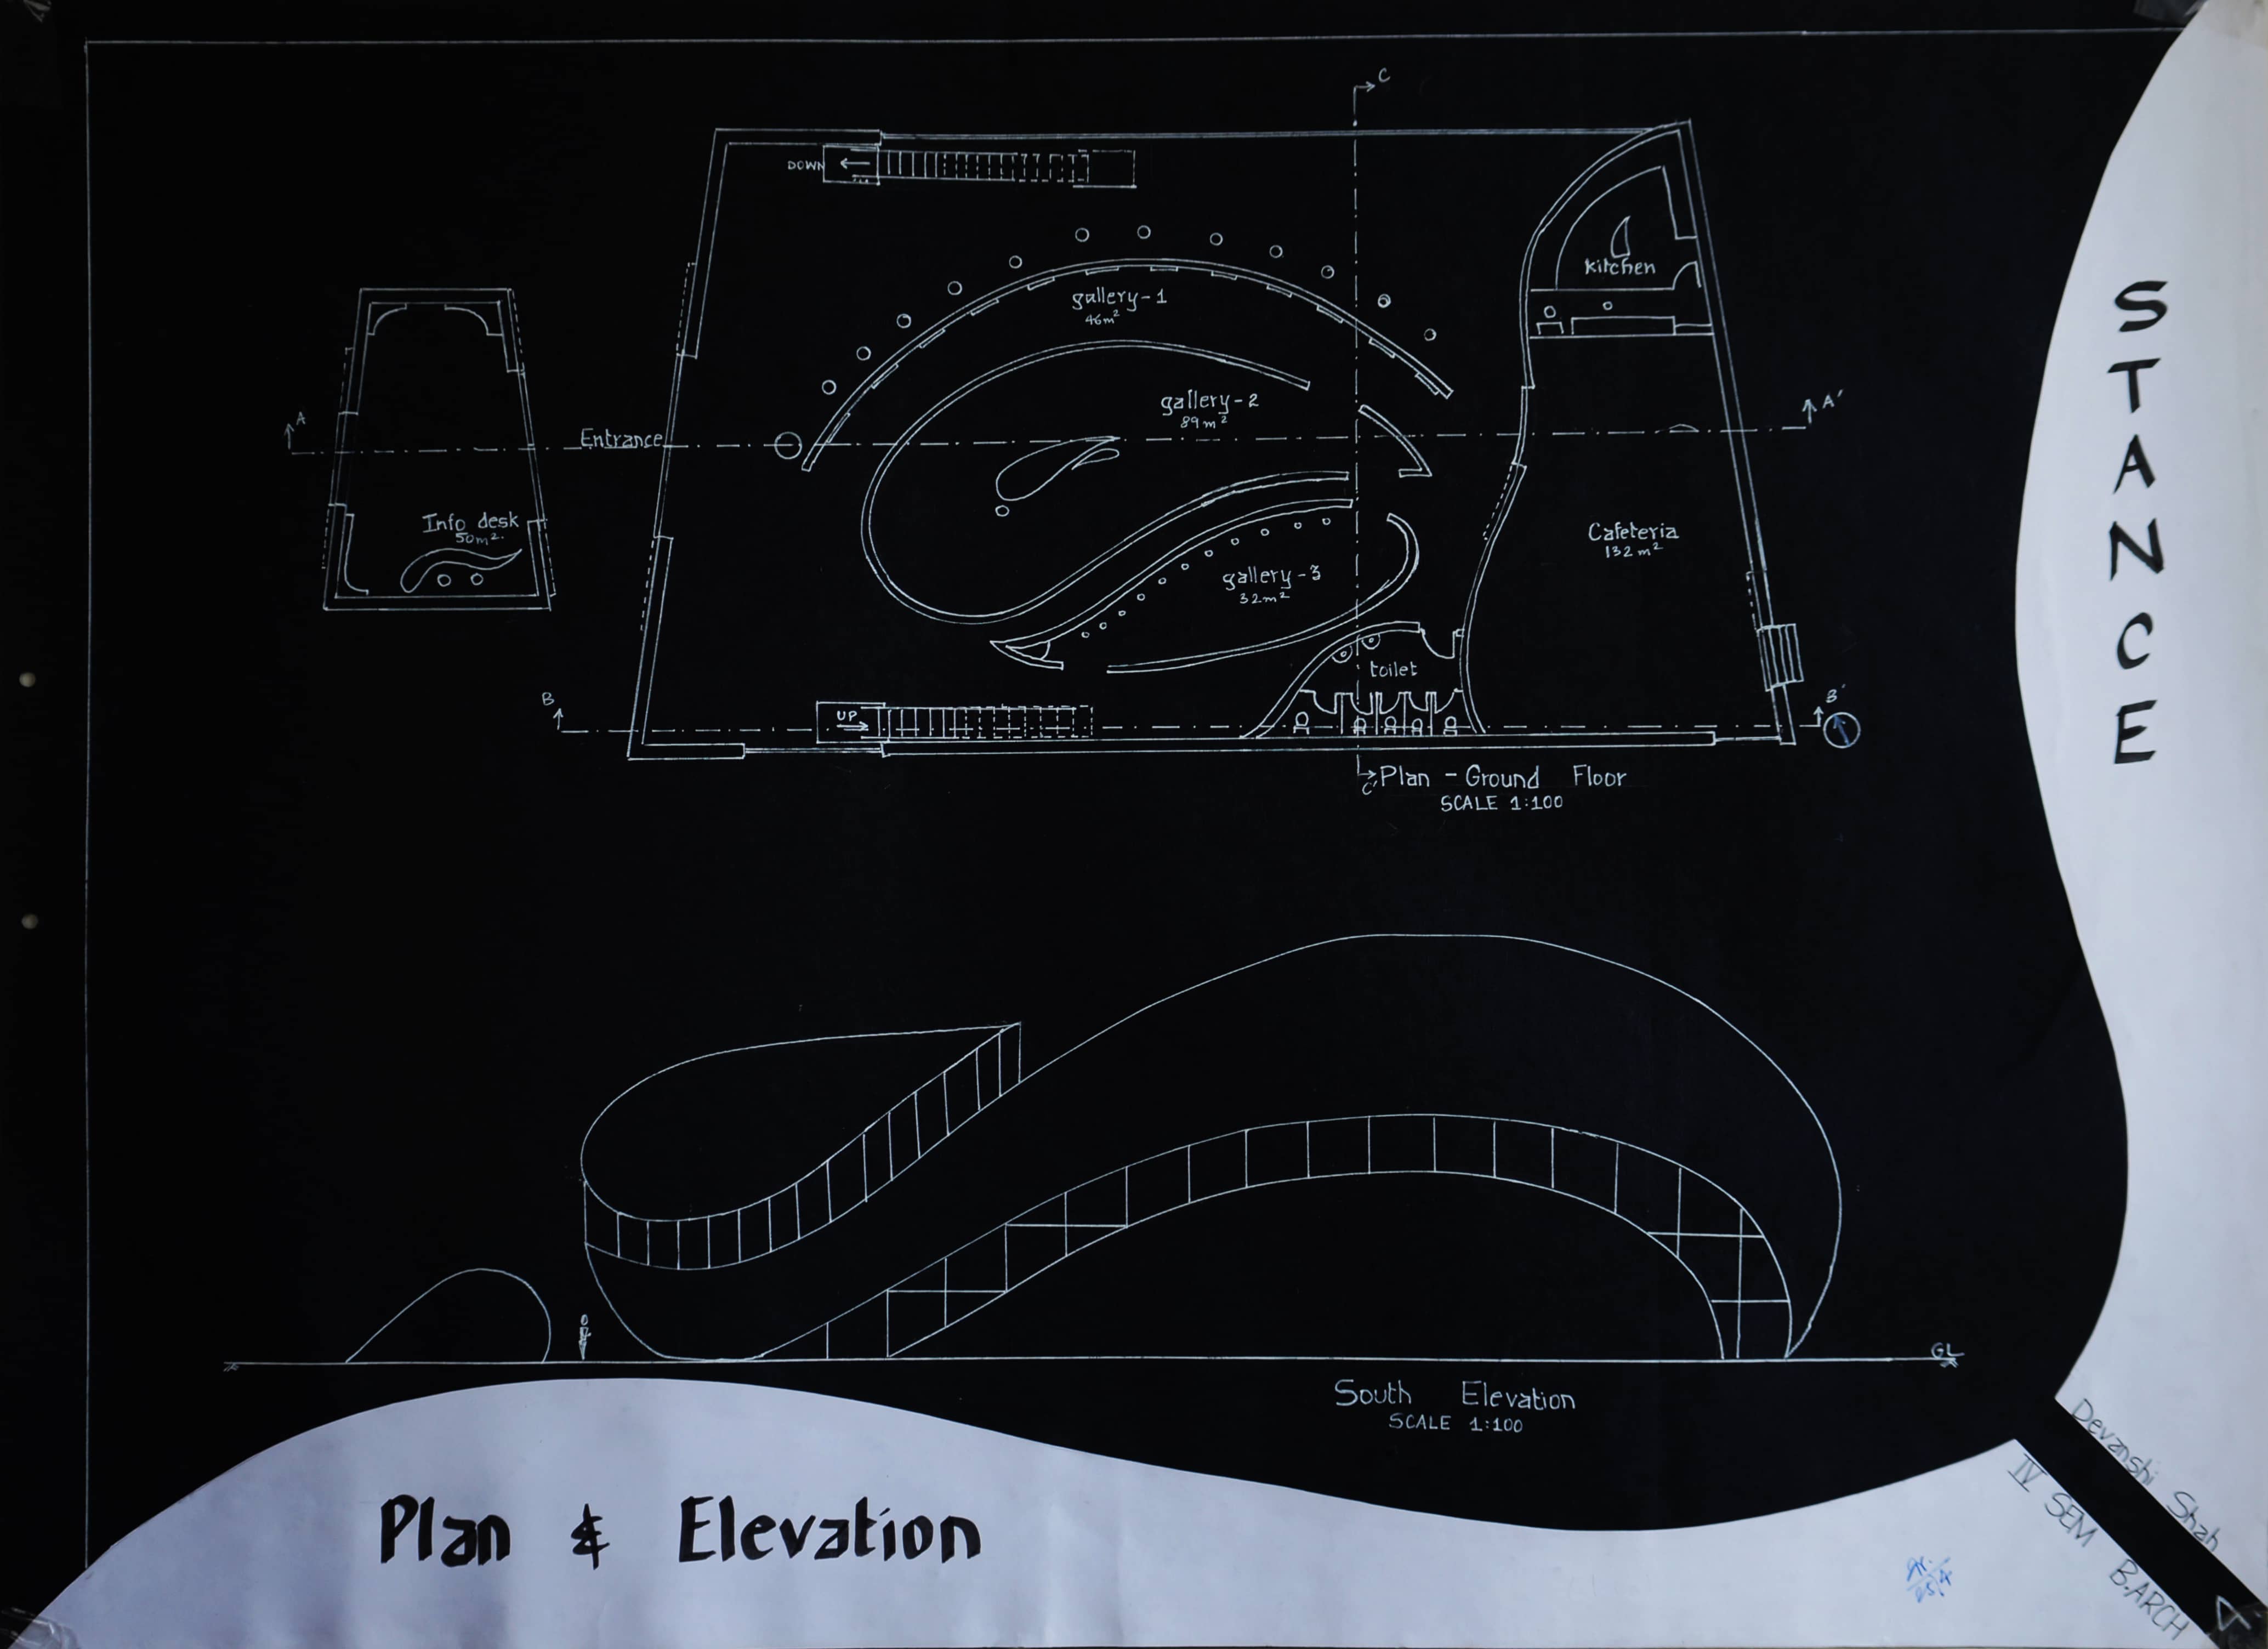 C
DOWN
kitchen
gallery-1
46m²
gallery-2
89m²
A
Entrance
A'
Info desk
50m².
Cafeteria
132 m²
gallery-3
32m²
toilet
B
UP
B'
C'
Plan - Ground Floor
SCALE 1:100
STANCE
GL
South Elevation
SCALE 1:100
Plan & Elevation
Devanshi Shah
IV SEM B.ARCH